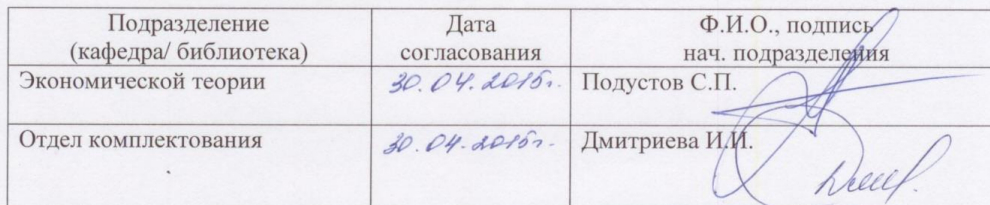 Подразделение
(кафедра/ библиотека)
Дата
согласования
Ф.И.О., подпись
нач. подразделения
Экономической теории
30.04.2015г.
Подустов С.П.
Отдел комплектования
30.04.2015г.
Дмитриева И.И.